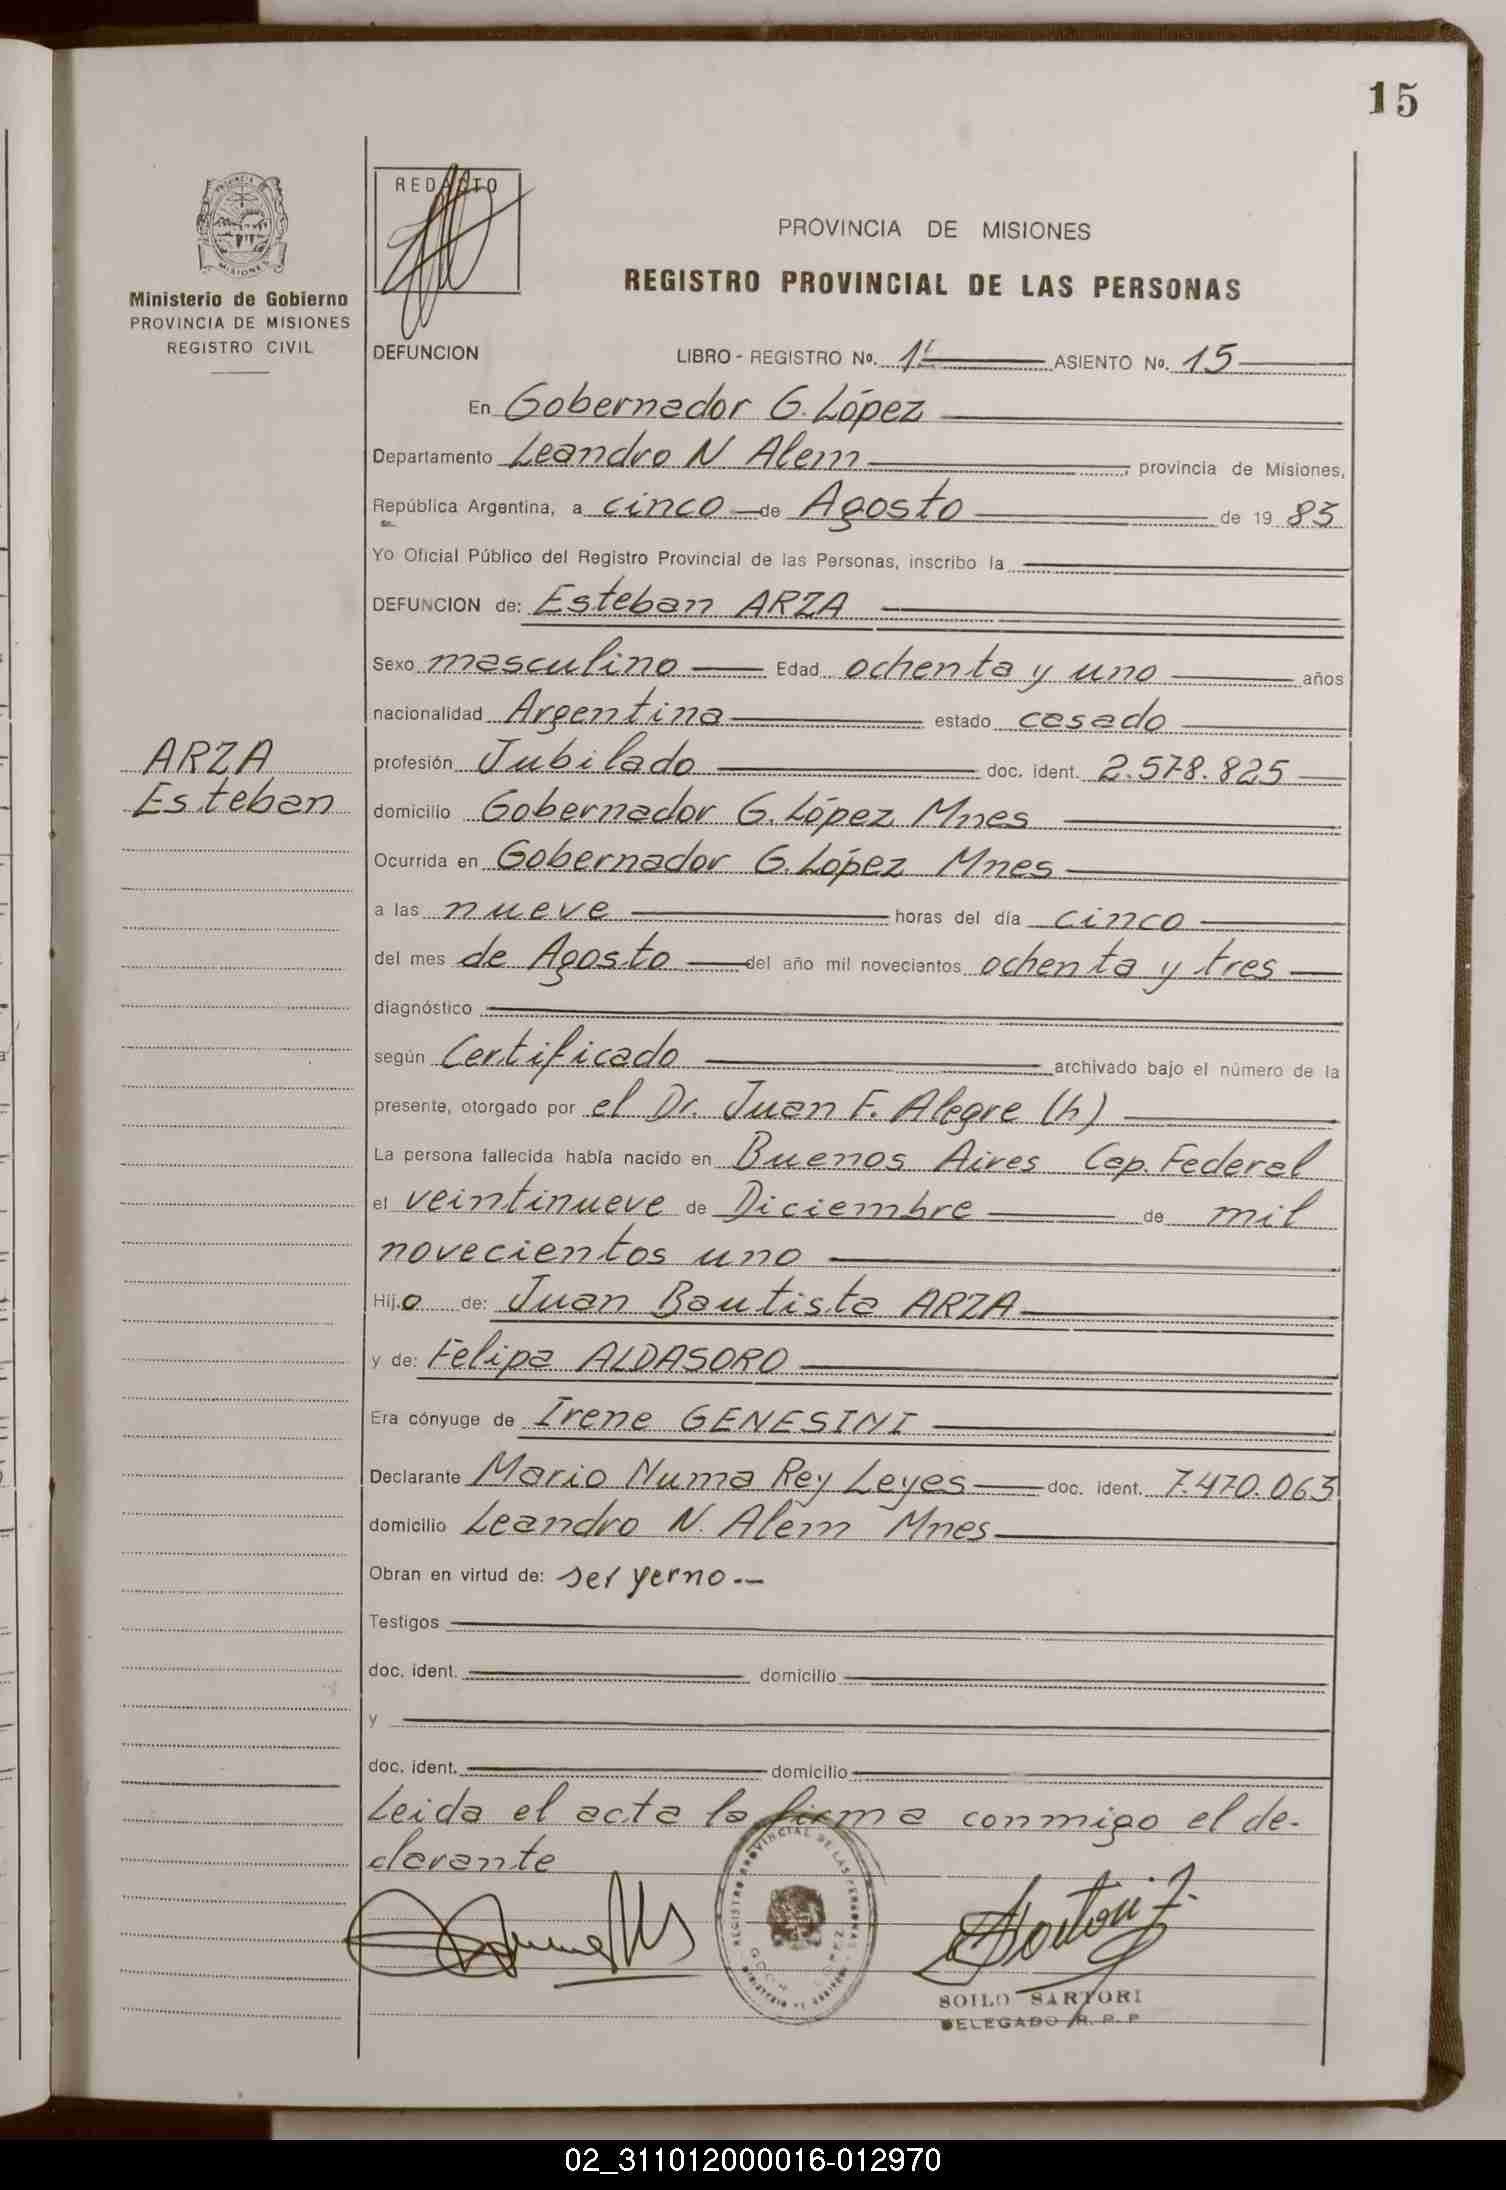 15
REDACTO
PROVINCIA DE MISIONES
REGISTRO PROVINCIAL DE LAS PERSONAS
PROVINCIA DE
MISIONES
Ministerio de Gobierno
PROVINCIA DE MISIONES
REGISTRO CIVIL
DEFUNCION LIBRO - REGISTRO No. ASIENTO No. 15
En Gobernador G. López
Departamento Leandro N Alem, provincia de Misiones,
República Argentina, a cinco de Agosto de 19 83
Yo Oficial Público del Registro Provincial de las Personas, inscribo la
DEFUNCION de: Esteban ARZA
Sexo masculino Edad ochenta y uno años
nacionalidad Argentina estado casado
ARZA
Esteban
profesión Jubilado doc. ident. 2.578.825
domicilio Gobernador G. López Mnes
Ocurrida en Gobernador G. López Mnes
a las nueve horas del día cinco
del mes de Agosto del año mil novecientos ochenta y tres
diagnóstico
según Certificado archivado bajo el número de la
presente, otorgado por el Dr. Juan F. Alegre (h)
La persona fallecida había nacido en Buenos Aires Cap. Federal
el veintinueve de Diciembre de mil
novecientos uno
Hij.o de: Juan Bautista ARZA
y de: Felipa ALDASORO
Era cónyuge de Irene GENESINI
Declarante Mario Numa Rey Leyes doc. ident. 7.470.063
domicilio Leandro N. Alem Mnes
Obran en virtud de: ser yerno.--
Testigos
doc. ident. domicilio
y
doc. ident. domicilio
Leida el acta la firma conmigo el de-
clarante
REGISTRO PROVINCIAL DE LAS PERSONAS
GDOR. LOPEZ
SOILO SARTORI
DELEGADO R. P. P.
02_311012000016-012970